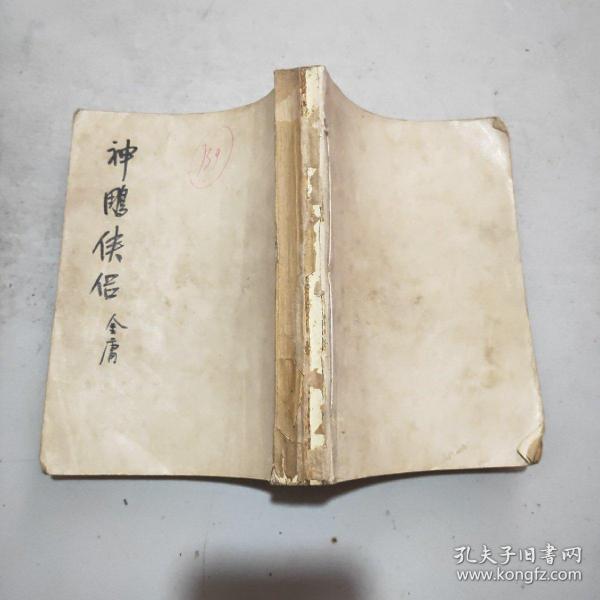 神鵰侠侣
金庸
139
孔夫子旧书网
www.kongfz.com